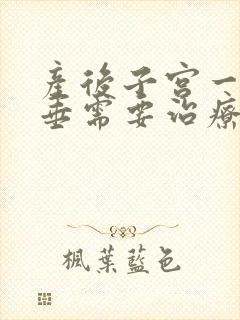 産後子宮一
垂需要治療
楓葉藍色